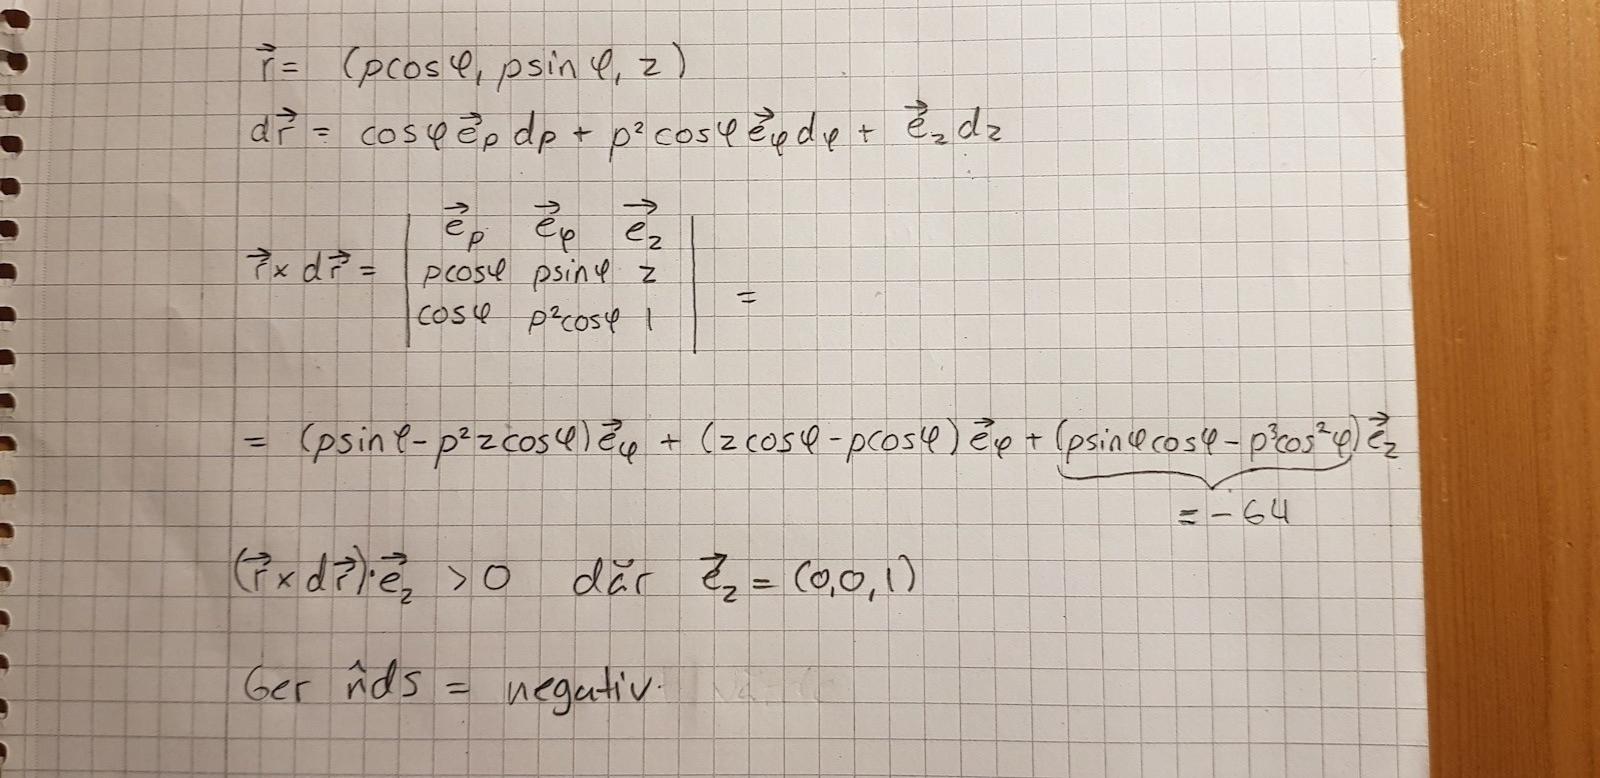 r⃗ = (ρcosφ, ρsinφ, z)
dr⃗ = cosφ e⃗ρ dρ + ρ²cosφ e⃗φ dφ + e⃗z dz
e⃗ρ e⃗φ e⃗z
r⃗ × dr⃗ = | ρcosφ ρsinφ z | =
cosφ ρ²cosφ 1
= (ρsinφ - ρ²zcosφ)e⃗φ + (zcosφ - ρcosφ)e⃗φ + (ρsinφcosφ - ρ³cos²φ)e⃗z
= -64
(r⃗ × dr⃗)·e⃗z > 0 där e⃗z = (0,0,1)
Ger n̂ds = negativ.